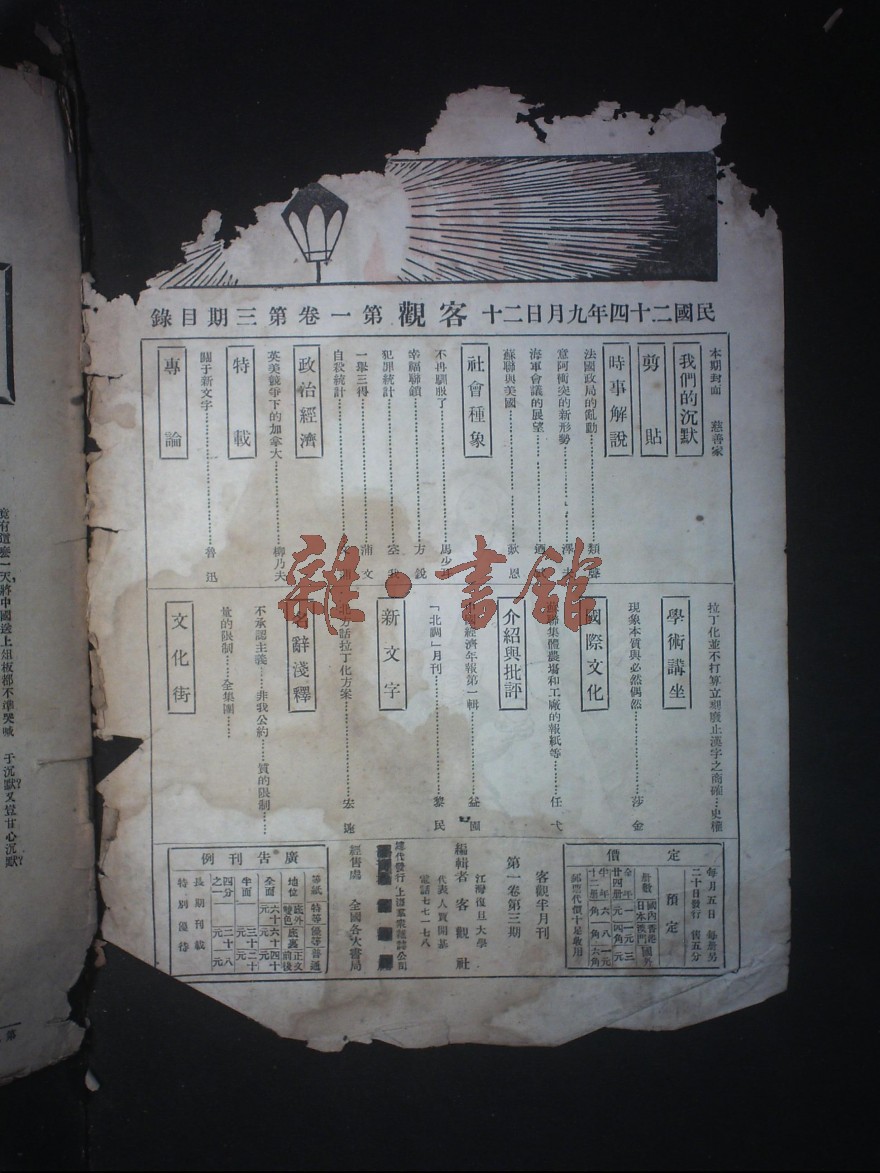 民國二十四年九月二十日 客觀 第一卷第三期目錄
本期封面 慈善家
我們的沉默
剪貼
時事解說
法國政局的亂動
意阿衝突的新形勢
海軍會議的展望
蘇聯與美國 歐恩
社會種象
不再馴服了
幸福聯鎖 方銳
犯罪統計
一舉三得 蒲文
自殺統計
政治經濟
英美競爭下的加拿大 柳乃夫
特載
關于新文字 魯迅
專論
拉丁化並不打算立刻廢止漢字之商確 史楨
學術講坐
現象本質與必然偶然 莎金
國際文化
集體農場和工廠的報紙等 任弋
介紹與批評
經濟年報第一輯 益圃
「北調」月刊 黎民
新文字
北方話拉丁化方案 宏
名辭淺釋
不承認主義 非我公約 質的限制
量的限制 全集團
文化街
定價
每月五日 每冊另
二十日發行 售五分
預定
冊數 國內 香港 國外
日本 澳門
郵票代價十足收用
客觀半月刊
第一卷第三期
江灣復旦大學
編輯者 客觀社
代表人 買開基
電話七七一七八
總代發行 上海羣衆雜誌公司
經售處 全國各大書局
廣告刊例
等級 特等 優等 普通
地位 底外 底裏 正文
雙色 前後
全面 六十元 六十元 四十元
半面 三十元 二十元
四分之一 二十元 十八元
長期刊載
特別優待
竟有這麼一天將中國送上俎板都不準哭喊
于沉默又豈甘心沉默
第
雜·書館